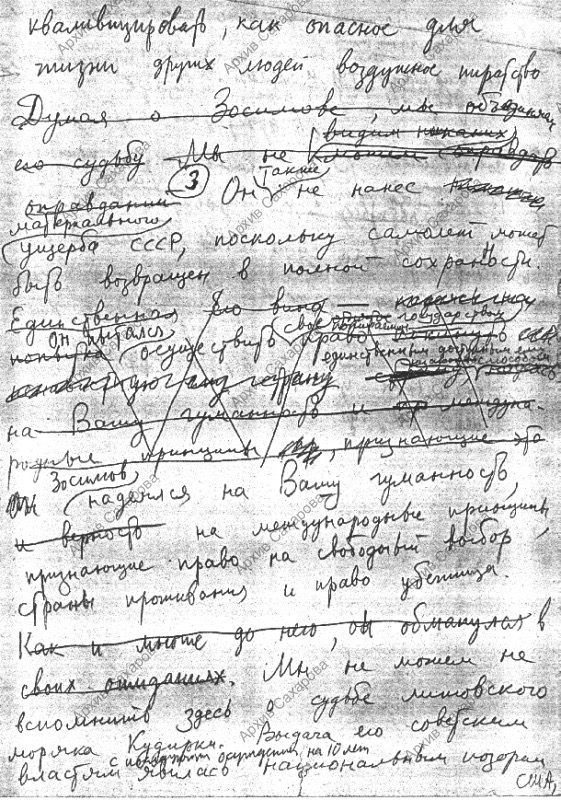 квалифицировать, как опасное для
жизни других людей воздушное пиратство
Думая о Зосимове, мы
его судьбу Мы не видим никаких
можем оправдать
оправдания ③ Он также не нанес
материального
ущерба СССР, поскольку самолет может
быть возвращен в полной сохранности.
Единственная его вина —
он пытался осуществить свое право
государством
единственным доступным ему
на Вашу гуманность и междуна-
родные принципы, признающие
Он Зосимов надеялся на Вашу гуманность,
и верность на международные принципы
признающие право на свободный выбор
страны проживания и право убежища.
Как и многие до него, он обманулся в
своих ожиданиях. Мы не можем не
вспомнить здесь о судьбе литовского
моряка Кудирки. Выдача его советским
с последующим осуждением на 10 лет
властям явилась национальным позором
США,
Архив Сахарова